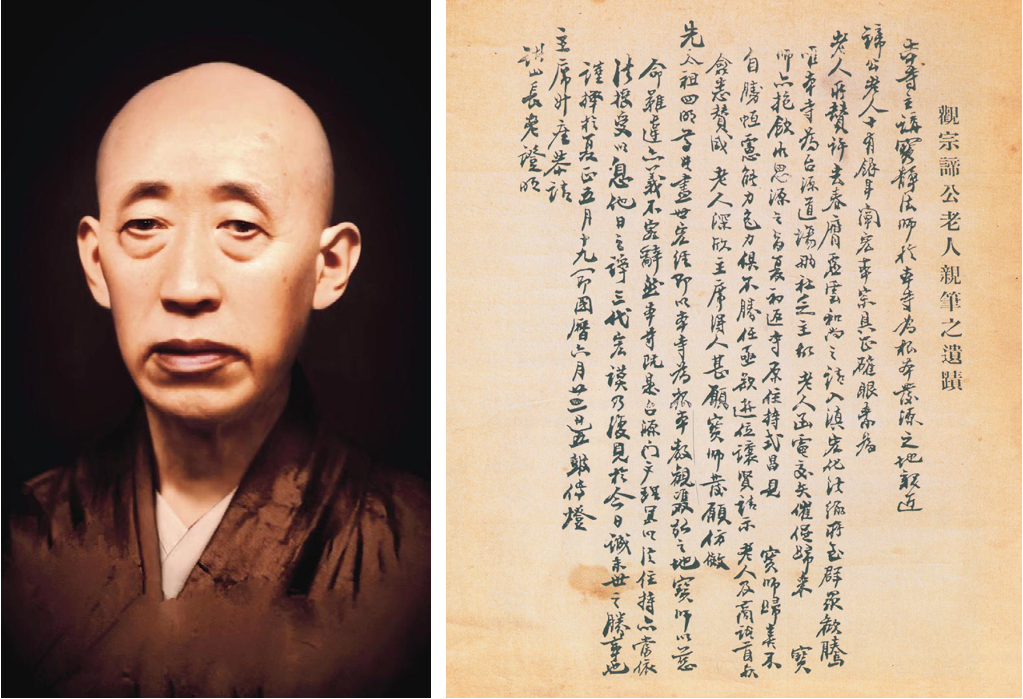 觀宗諦公老人親筆之遺蹟
本寺主講寶靜法師於本寺為根本發源之地親近
諦公老人十有餘年闡宏本宗具正確眼素為
老人所贊許去春膺虛雲和尚之請入滇宏化法緣所至群眾歡騰
唯本寺為台源道場砥柱乏主故老人函電交矢催促歸來寶
師亦抱飲水思源之旨夏初返寺原住持式昌見寶師歸來不
自勝恒慮能力色力俱不勝任亟欲遜位讓賢請示老人及商諸首數
僉悉贊成老人深欣主席得人甚願寶師發願仿傚
先太祖四明尊者盡世宏法即以本寺為根本教觀總弘之地寶師以慈
命難違亦義不容辭然本寺既是台源門戶理宜以法住持亦當依
法授受以息他日之諍三代宏謨乃復見於今日誠末世之勝事也
謹擇於夏正五月十九即國曆六月廿二日五鼓傳燈
主席升座恭請
諸山長老證明